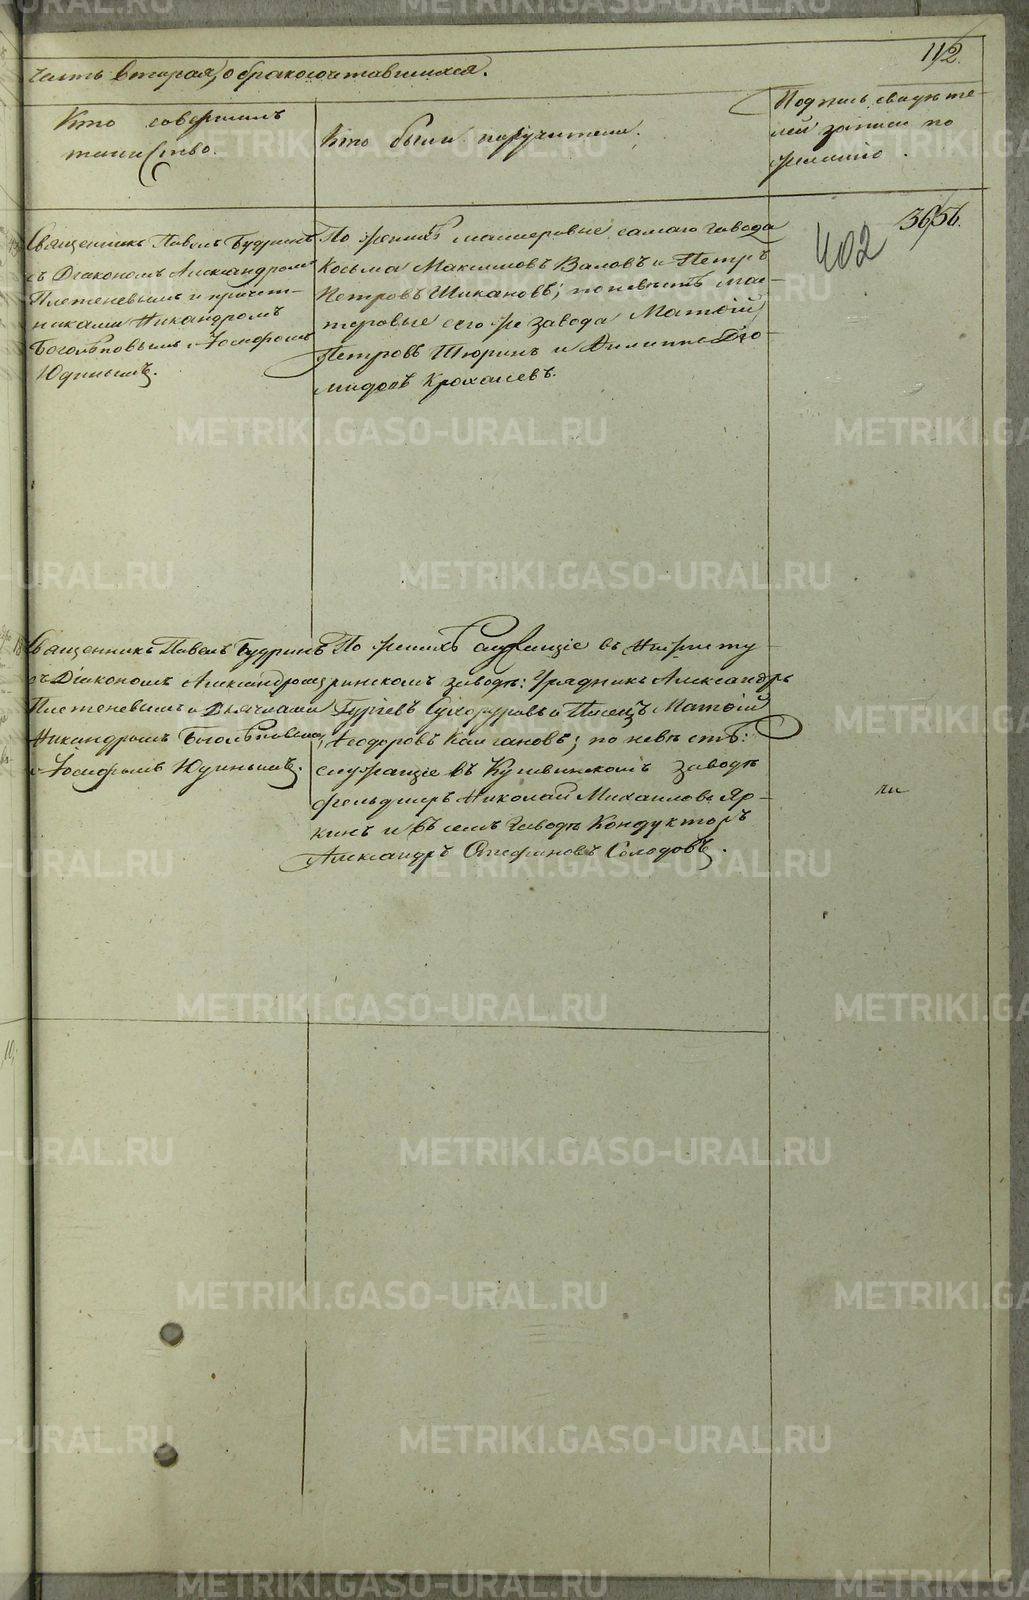 112.
часть вторая, о бракосочетавшихся.
Кто совершилъ
таинство.
Кто были поручители.
Подпись свидѣте-
лей записи по
желанію.
Священникъ Павелъ Будринъ
съ Діакономъ Александромъ
Плетеневымъ и причет-
никами Никандромъ
Боголѣповымъ и Іосифомъ
Юдинымъ.
По женихѣ мастеровые самаго завода
Косьма Максимовъ Валовъ и Петръ
Петровъ Шикановъ; по невѣстѣ мас-
теровые сего же завода Матѳій
Петровъ Тюринъ и Филиппъ Діо-
мидовъ Крохалевъ.
402
3656.
Священникъ Павелъ Будринъ
съ Діакономъ Александромъ
Плетеневымъ и Дьячками
Никандромъ Боголѣповымъ
и Іосифомъ Юдинымъ.
По женихѣ служащіе въ Нижнету-
ринскомъ заводѣ: Урядникъ Александръ
и Писецъ Матѳій
Ѳеодоровъ по невѣстѣ:
служащіе въ Кушвинскомъ заводѣ
фельдшеръ Николай Михаиловъ Яр-
кинъ и въ семъ заводѣ Кондукторъ
Александръ Стефановъ Солодовъ.
ли
METRIKI.GASO-URAL.RU